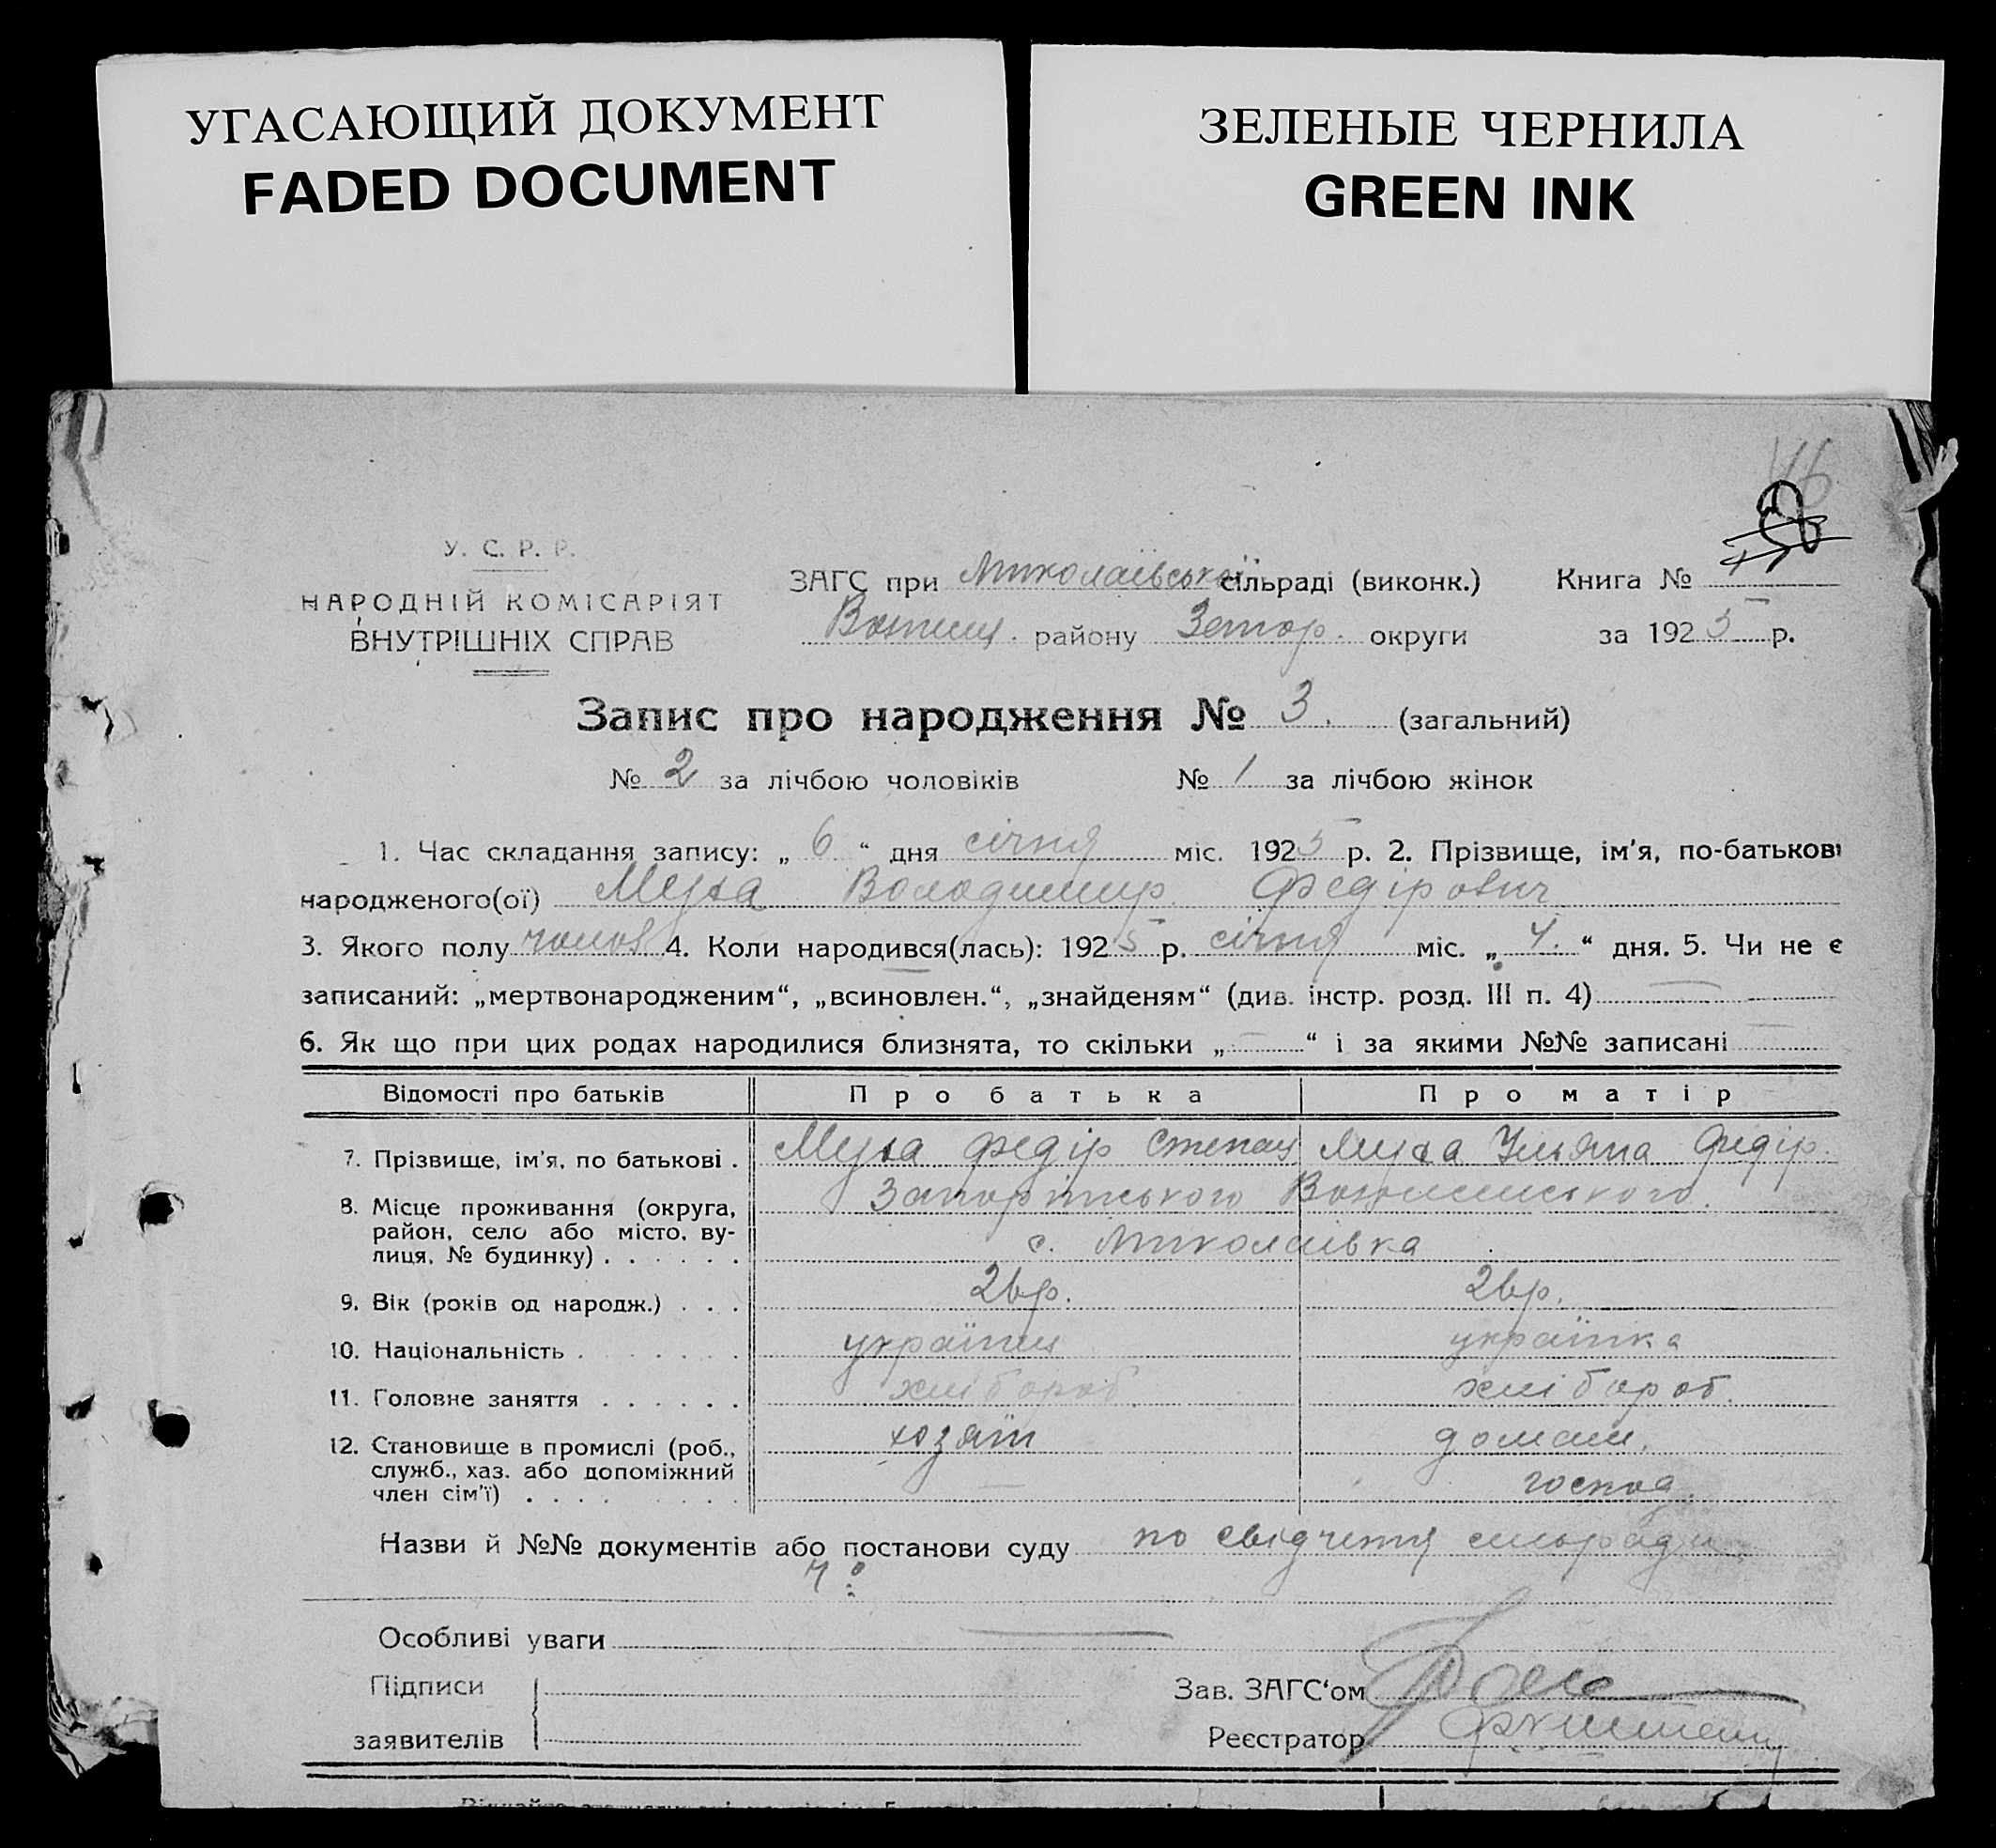 УГАСАЮЩИЙ ДОКУМЕНТ
FADED DOCUMENT
ЗЕЛЕНЫЕ ЧЕРНИЛА
GREEN INK
У. С. Р. Р.
НАРОДНІЙ КОМІСАРІЯТ
ВНУТРІШНІХ СПРАВ
ЗАГС при Миколаївській сільраді (виконк.) Книга №
району Запор. округи за 1925 р.
Запис про народження № 3. (загальний)
№ 2 за лічбою чоловіків № 1 за лічбою жінок
1. Час складання запису: „ 6 “ дня січня міс. 1925 р. 2. Прізвище, ім'я, по-батькові
народженого(ої) Муха Володимир Федірович
3. Якого полу чолов. 4. Коли народився(лась): 1925 р. січня міс. „ 4. “ дня. 5. Чи не є
записаний: „мертвонародженим“, „всиновлен.“, „знайденям“ (див. інстр. розд. III п. 4) —
6. Як що при цих родах народилися близнята, то скільки „ — “ і за якими №№ записані —
Відомості про батьків Про батька Про матір
7. Прізвище, ім'я, по батькові . Муха Федір Степан Муха Уляна Федір.
8. Місце проживання (округа, Запоріжського
район, село або місто, ву- с. Миколаївка
лиця, № будинку) . . . . . .
9. Вік (років од народж.) . . . 26р. 26р.
10. Національність . . . . . . . українец українка
11. Головне заняття . . . . . . хлібороб. хлібороб.
12. Становище в промислі (роб., хозяїн домаш.
служб., хаз. або допоміжний господ.
член сім'ї) . . . . . . . . .
Назви й №№ документів або постанови суду по свідчення сільради
Особливі уваги —
Підписи
заявителів
Зав. ЗАГС‘ом
Реєстратор